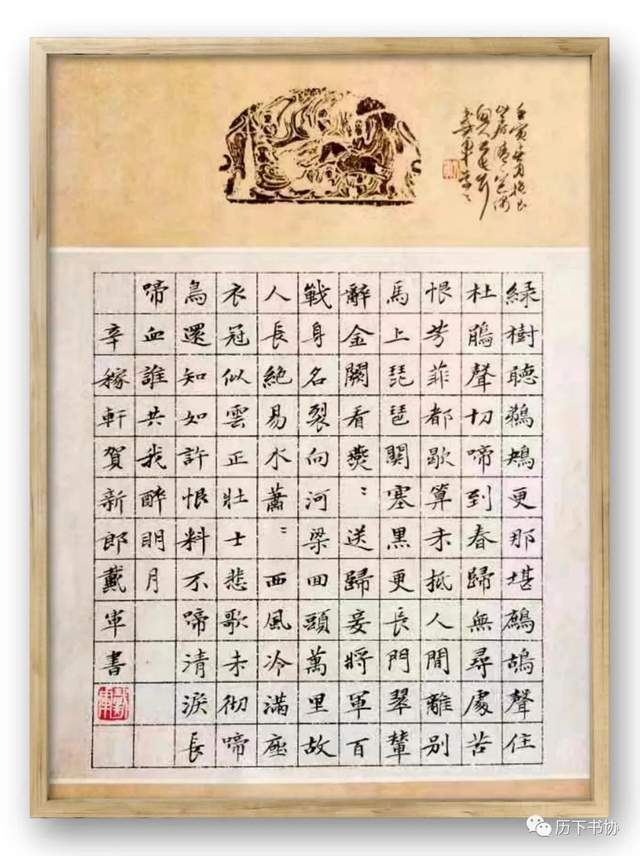 壬寅
綠樹聽鵜鴂更那堪鷓鴣聲住
杜鵑聲切啼到春歸無尋處苦
恨芳菲都歇算未抵人間離別
馬上琵琶關塞黑更長門翠輦
辭金闕看燕〻送歸妾將軍百
戰身名裂向河梁回頭萬里故
人長絕易水蕭〻西風冷滿座
衣冠似雲正壯士悲歌未徹啼
鳥還知如許恨料不啼清淚長
啼血誰共我醉明月
辛稼軒賀新郎戴軍書
历下书协